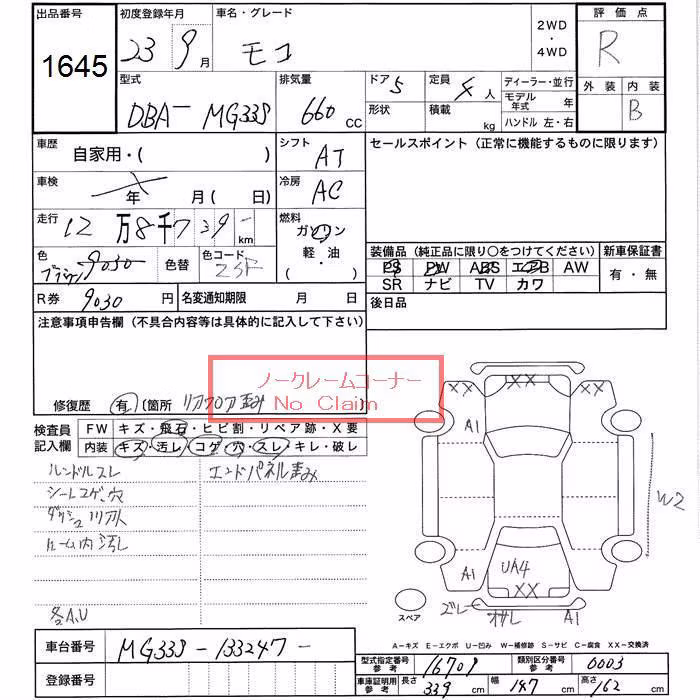 出品番号 初度登録年月 車名・グレード 2WD・4WD 評価点
1645 23 9月 モコ R
外装 内装
B
型式 排気量 ドア 5 定員 4人 ディーラー・並行
DBA- MG33S 660 CC 形状 積載 kg モデル年式 年
ハンドル 左・右
車歴 自家用・( ) シフト AT セールスポイント (正常に機能するものに限ります)
車検 年 月(日) 冷房 AC
走行 12万8千739 km 燃料 ガソリン
軽・油
( )
色 ブラウン 色替 色コード
装備品 (純正品に限り○をつけてください) 新車保証書
PS PW ABS エアB AW 有・無
SR ナビ TV カワ
R券 9030円 名変通知期限 月 日 後日品
注意事項申告欄 (不具合内容等は具体的に記入して下さい)
ノークレームコーナー
No Claim
修復歴 有 〔箇所 リアフロア歪み 〕
検査員記入欄 FW キズ・飛石・ヒビ割・リペア跡・X要
内装 キズ・汚レ・コゲ・穴・スレ・キレ・破レ
ハンドルスレ エンドパネル歪み
シートコゲ、穴
ルーム内汚レ
各A.U
XX XX XX
A1
W2
A1 UA4 XX
スペア
ズレ オサレ A1
車台番号 MG33S-133247-
登録番号
A-キズ E-エクボ U-凹み W-補修跡 S-サビ C-腐食 XX-交換済
型式指定番号 参考 16709 類別区分番号 参考 0003
車庫証明用 参考 長さ 339 cm 幅 147 cm 高さ 162 cm